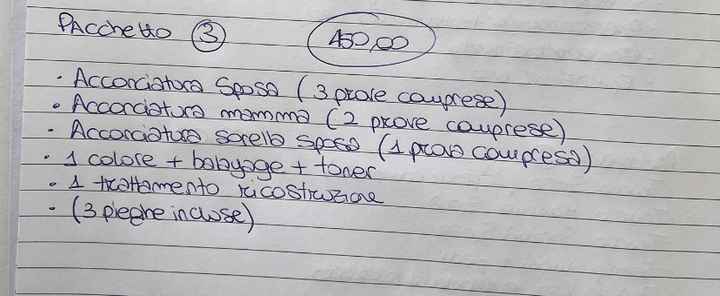 PAcchetto 3 450,00
• Acconciatura Sposa (3 prove comprese)
• Acconciatura mamma (2 prove comprese)
• Acconciatura sorella sposa (1 prova compresa)
• 1 colore + balayage + toner
• 1 trattamento ricostruzione
• (3 pieghe incluse)